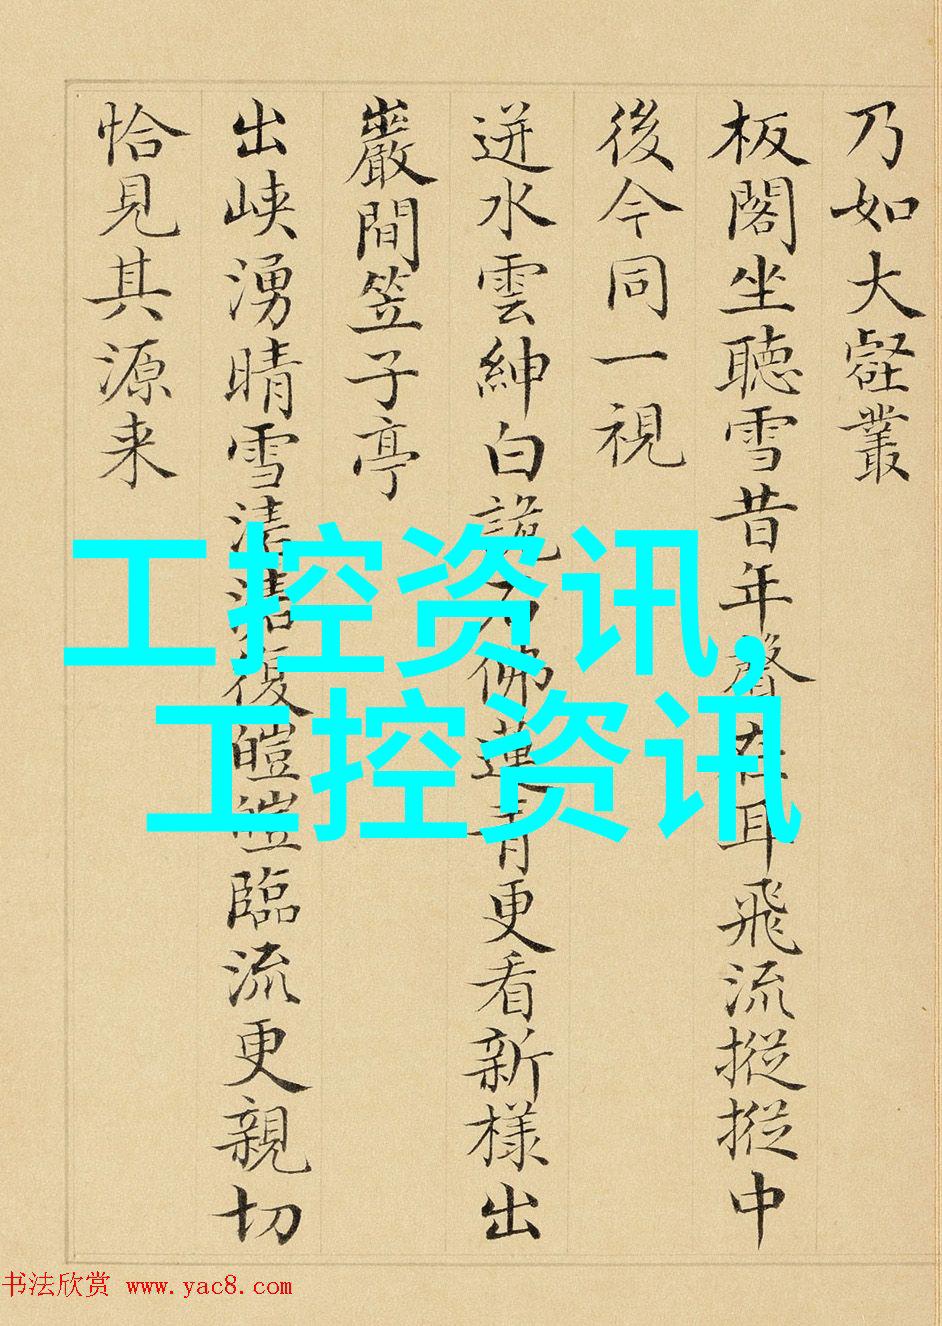 乃如大壑叢
板閣坐聽雪昔年聲在耳飛流摐摐中
後今同一視
迸水雲紳白說乃佛蓮青更看新樣出
巖間笠子亭
出峽湧晴雪清清復皚皚臨流更親切
恰見其源来
工控资讯,
工控资讯
书法欣赏 www.yac8.com